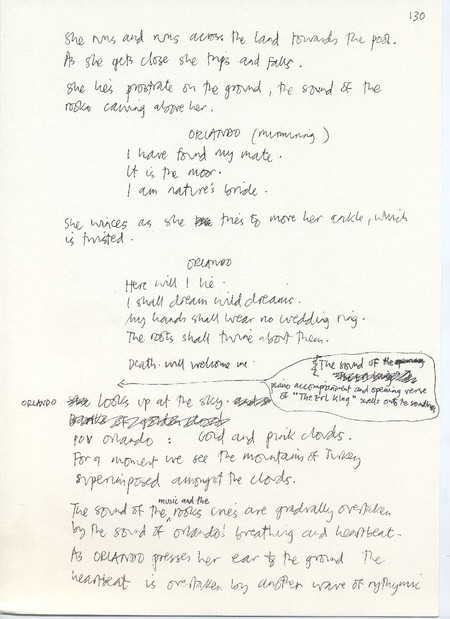 130
She runs and runs across the land towards the pool.
As she gets close she trips and falls.
She lies prostrate on the ground, the sound of the
rooks cawing above her.
ORLANDO (murmuring)
I have found my mate.
It is the moor.
I am nature's bride.
She winces as she tries to move her ankle, which
is twisted.
ORLANDO
Here will I lie.
I shall dream wild dreams.
My hands shall wear no wedding ring.
The roots shall twine about them.
Death will welcome me.
The sound of the
piano accompaniment and opening verse
of "The Erl King" swells onto the soundtrack
ORLANDO looks up at the sky.
POV Orlando: Gold and pink clouds.
For a moment we see the mountains of Turkey
superimposed amongst the clouds.
The sound of the music and the rooks cries are gradually overtaken
by the sound of Orlando's breathing and heartbeat.
As ORLANDO presses her ear to the ground the
heartbeat is overtaken by another wave of rythmic